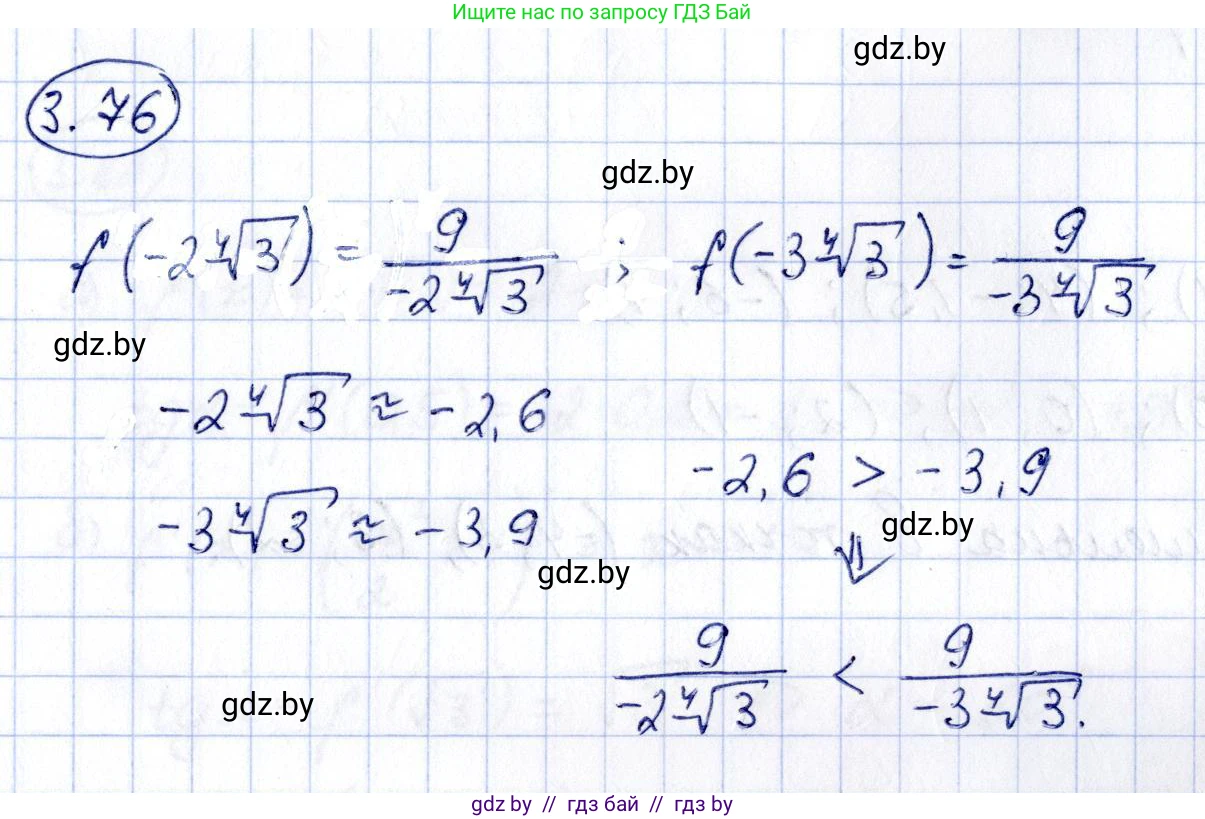 Ищите нас по запросу ГДЗ Бай
gdz.by
3.76
gdz.by
f(-2∜3) = 9/(-2∜3) ; f(-3∜3) = 9/(-3∜3)
gdz.by
-2∜3 ≈ -2,6
-2,6 > -3,9
-3∜3 ≈ -3,9
gdz.by
gdz.by
⇓
9/(-2∜3) < 9/(-3∜3).
gdz.by
gdz.by // гдз бай // гдз by